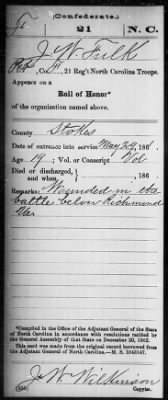 (Confederate.)
21 N.C.
J. W. Fulk
Pvt, Co. F, 21 Reg't North Carolina Troops.
Appears on a
Roll of Honor*
of the organization named above.
County Stokes
Date of entrance into service May 29, 1861.
Age 19; Vol. or Conscript Vol
Died or discharged, and when, , 186 .
Remarks: Wounded in the
battle below Richmond
Va.
*Compiled in the Office of the Adjutant General of the State
of North Carolina in accordance with resolutions ratified by
the General Assembly of that State on December 20, 1862.
This card was made from the original record borrowed from
the Adjutant General of North Carolina.—M. S.
J. W. Wilkinson
Copyist.